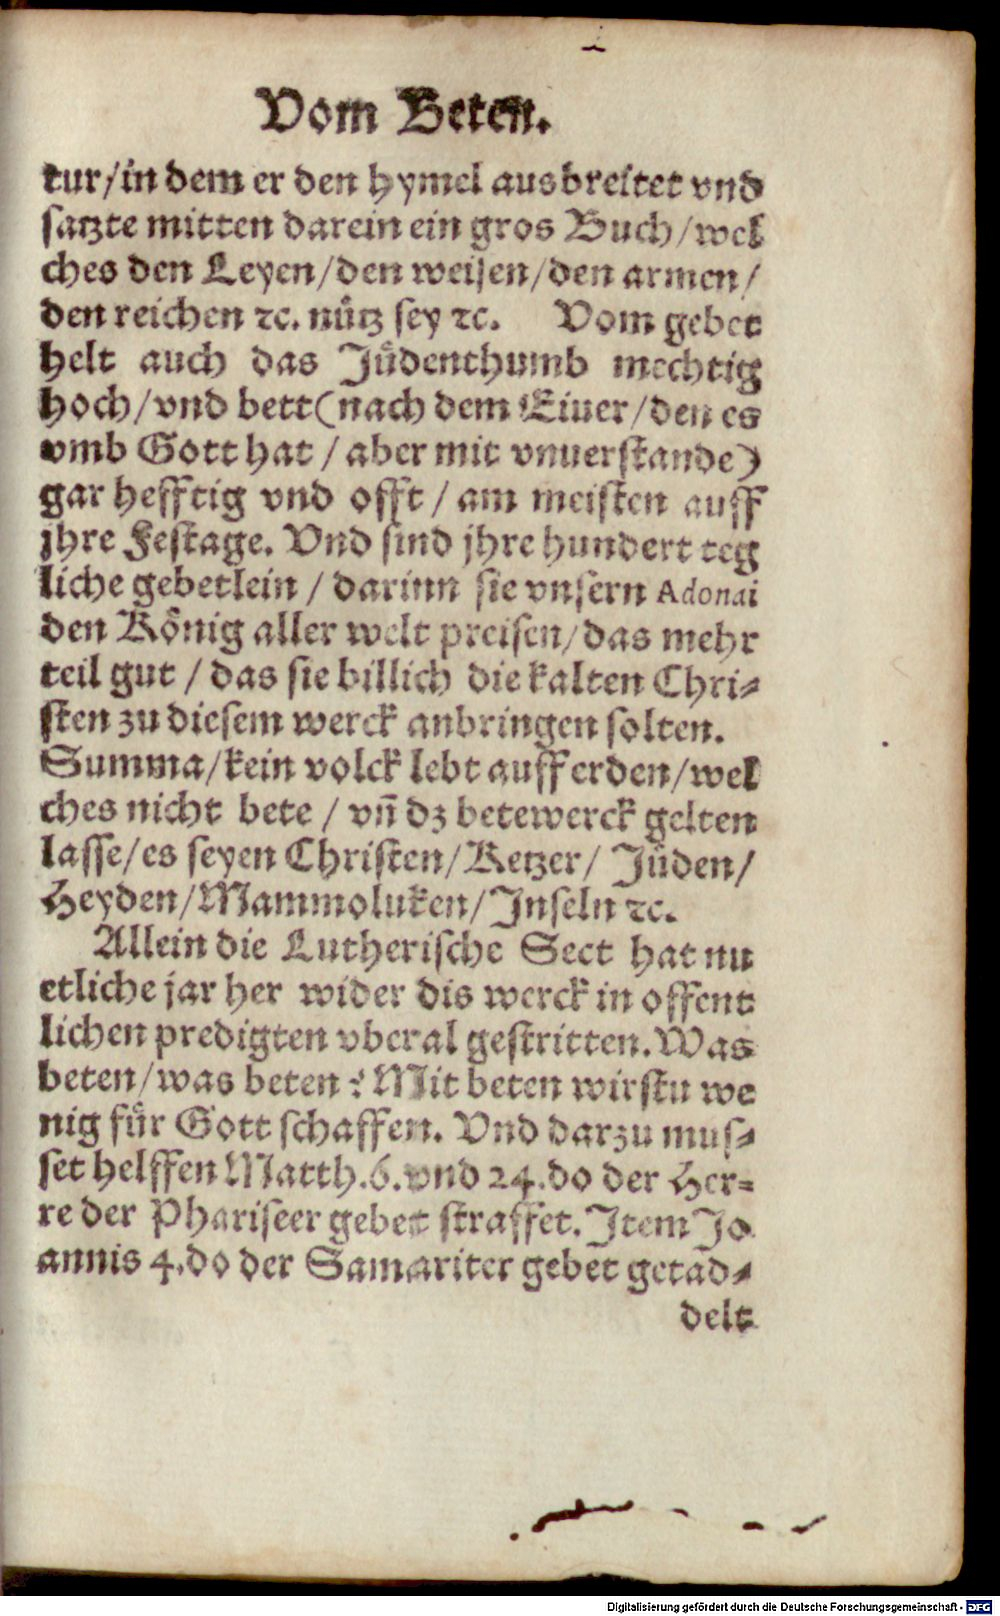 Vom Beten.
tur/in dem er den hymel ausbreitet vnd
satzte mitten darein ein gros Buch/wel
ches den Leyen/den weisen/den armen/
den reichen ꝛc. nuͤtz sey ꝛc. Vom gebet
helt auch das Juͤdenthumb mechtig
hoch/vnd bett(nach dem Eiuer/den es
vmb Gott hat / aber mit vnuerstande)
gar hefftig vnd offt / am meisten auff
jhre Festage. Vnd sind jhre hundert teg
liche gebetlein / darinn sie vnsern Adonai
den Koͤnig aller welt preisen/das mehr
teil gut / das sie billich die kalten Chri⸗
sten zu diesem werck anbringen solten.
Summa/kein volck lebt auff erden/wel
ches nicht bete / vn̄ dz betewerck gelten
lasse/es seyen Christen/Ketzer/ Juͤden/
Heyden/Mammoluken/Inseln ꝛc.
Allein die Lutherische Sect hat nu
etliche jar her wider dis werck in offent
lichen predigten vberal gestritten. Was
beten/was beten? Mit beten wirstu we
nig fuͤr Gott schaffen. Vnd darzu mus⸗
set helffen Matth.6.vnd 24.do der Her⸗
re der Phariseer gebet straffet. Item Jo
annis 4.do der Samariter gebet getad⸗
delt
Digitalisierung gefördert durch die Deutsche Forschungsgemeinschaft - DFG